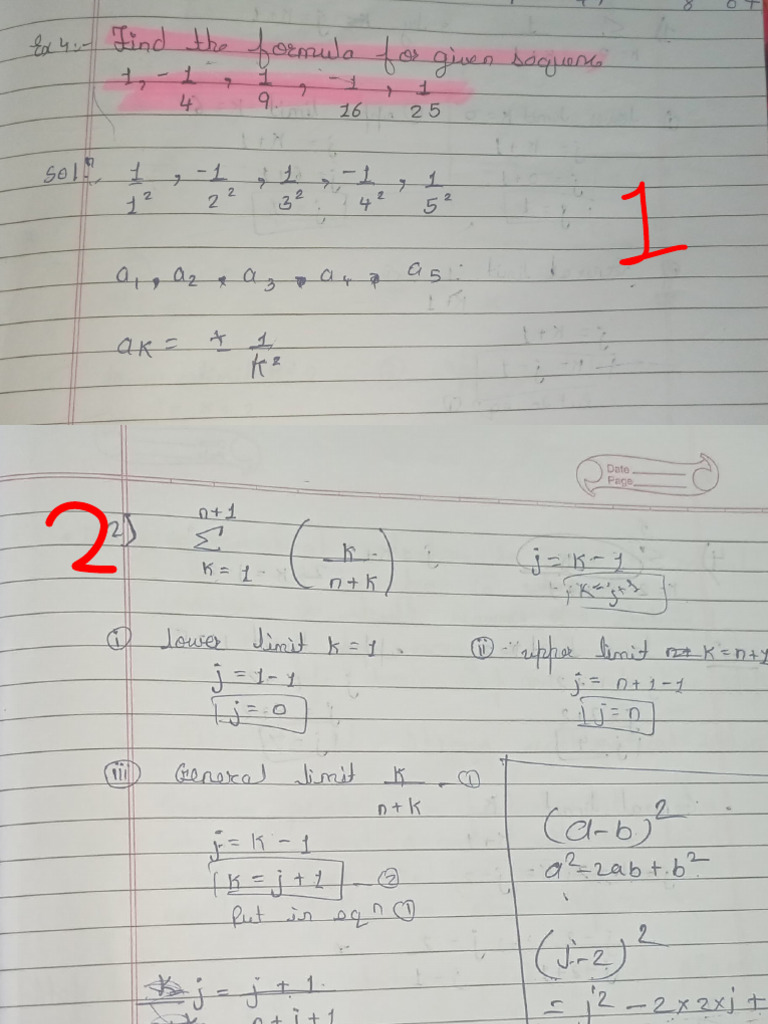 Ex 4:- Find the formula for given sequence
1, -1/4, 1/9, -1/16, 1/25
Solⁿ:- 1/1², -1/2², 1/3², -1/4², 1/5²
1
a₁, a₂, a₃, a₄, a₅
aK = ± 1/K²
Date
Page
2
2) n+1 Σ K=1 (K/(n+K)) j = K-1
K=j+1
i lower limit K=1. ii upper limit K=n+1
j = 1-1 j = n+1-1
j = 0 j = n
iii General limit K/(n+K) - ①
j = K-1
K = j+1 - ②
Put in eqⁿ ①
j = (j+1)/(n+j+1)
(a-b)²
a²-2ab+b²
(j-2)²
= j² - 2×2×j +